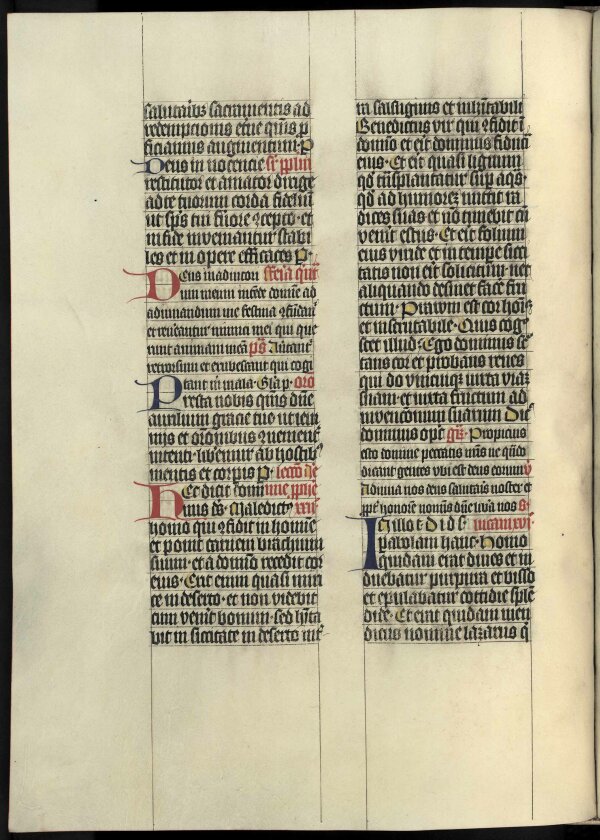 salutaribus sacramentis ad
redemptionis eterne quis p
ficiamus augmentum P
Deus innocencie sr pplm
restitutor et amator dirige
ad te tuorum corda fidelium
ut sps tui fuore cepto et
in fide inveniantur stabi
les et in opere efficaces P
Deus in adiutori feria quit
um meum intende domine ad
adiuuandum me festina confundant
et reuereantur inimici mei qui que
runt animam mea ps Auertant
retrorsum et erubescant qui cogi
tant m mala Gla p oro
Presta nobis quis dne
auxilium gracie tue ut ieiu
niis et oronibus conuenient
intenti liberemur ab hostibus
mentis et corpis P lectio
Hec dicit dominus
deus Maledictus xvii
homo qui confidit in homine
et ponit carnem brachium
suum et a domino recedit cor
eius Erit enim quasi miri
ce in deserto et non videbit
cum venerit bonum sed hita
bit in siccitate in deserto int
in salsuginis et inhitabili
Benedictus vir qui confidit i
domino et erit dominus fiduci
eius Et erit quasi lignum
qd tnsplantatur sup aqs
qd ad humorez mittit ra
dices suas et no timebit cu
venerit estus Et erit folium
eius viride et in tempe sicci
tatis non erit sollicitum nec
aliquando desinet facere fru
ctum Prauum est cor hois
et inscrutabile Quis cog
scet illud Ego dominus scru
tans cor et probans renes
qui do vnicuiq iuxta viaz
suam et iuxta fructum ad
inventionum suarum Dicit
dominus opt gr Propicius
esto domine peccatis nris ne qndo
dicant gentes vbi est deus eorum v
Adiuua nos deus salutaris noster et
ppt honore nominis dne libera nos S
In illo t Dixit s lucam xvi
parabolam hanc Homo
quidam erat diues et in
duebatur purpura et bisso
et epulabatur cottidie sple
dide Et erat quidam men
dicus nomine lazarus q